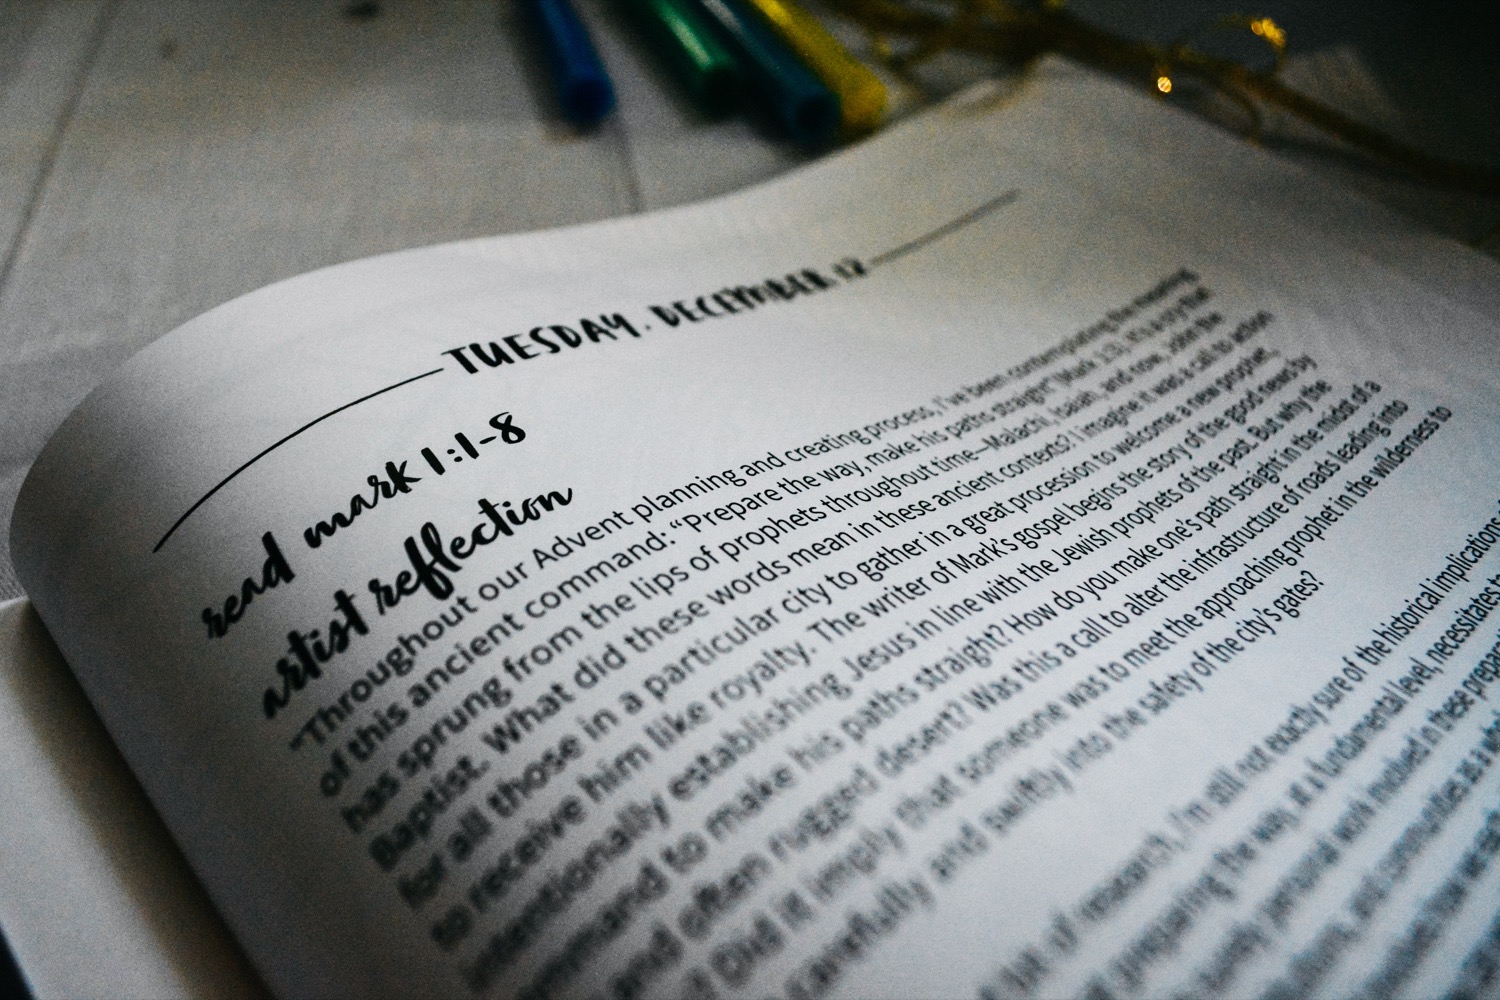 TUESDAY, DECEMBER 12
read mark 1:1-8
artist reflection
"Throughout our Advent planning and creating process, I've been contemplating the meaning
of this ancient command: "Prepare the way, make his paths straight" (Mark 1:3). It's a cry that
has sprung from the lips of prophets throughout time—Malachi, Isaiah, and now, John the
Baptist. What did these words mean in these ancient contexts? I imagine it was a call to action
for all those in a particular city to gather in a great procession to welcome a new prophet,
to receive him like royalty. The writer of Mark's gospel begins the story of the good news by
intentionally establishing Jesus in line with the Jewish prophets of the past. But why the
command to make his paths straight? How do you make one's path straight in the midst of a
and often rugged desert? Was this a call to alter the infrastructure of roads leading into
Did it imply that someone was to meet the approaching prophet in the wilderness to
carefully and swiftly into the safety of the city's gates?
of research, I'm still not exactly sure of the historical implications
preparing the way, at a fundamental level, necessitates
personal work involved in these
and communities as a